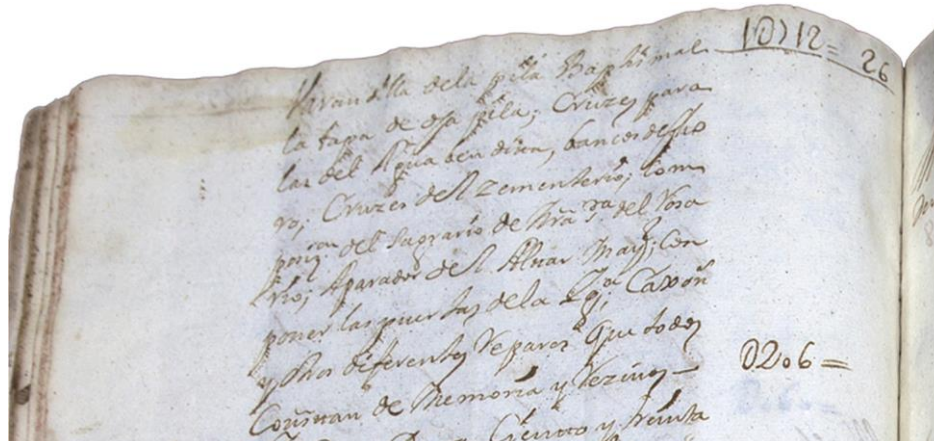 26
1D)12=
Varandilla dela pila Baphismal
la tapa de esa pila; Cruzes para
las del Agua bendita, bancos de assio
ro; Cruzes del zementerio; Com
posiz.on del Sagrario de Nra S.ra del Rosa
rio; Aparador del Altar May; Con
poner las puertas dela Ygª Caxon
y otros diferentes Reparos que todos
Constan de Memoria y Rezivos — D2o6=
Ciento y treinta